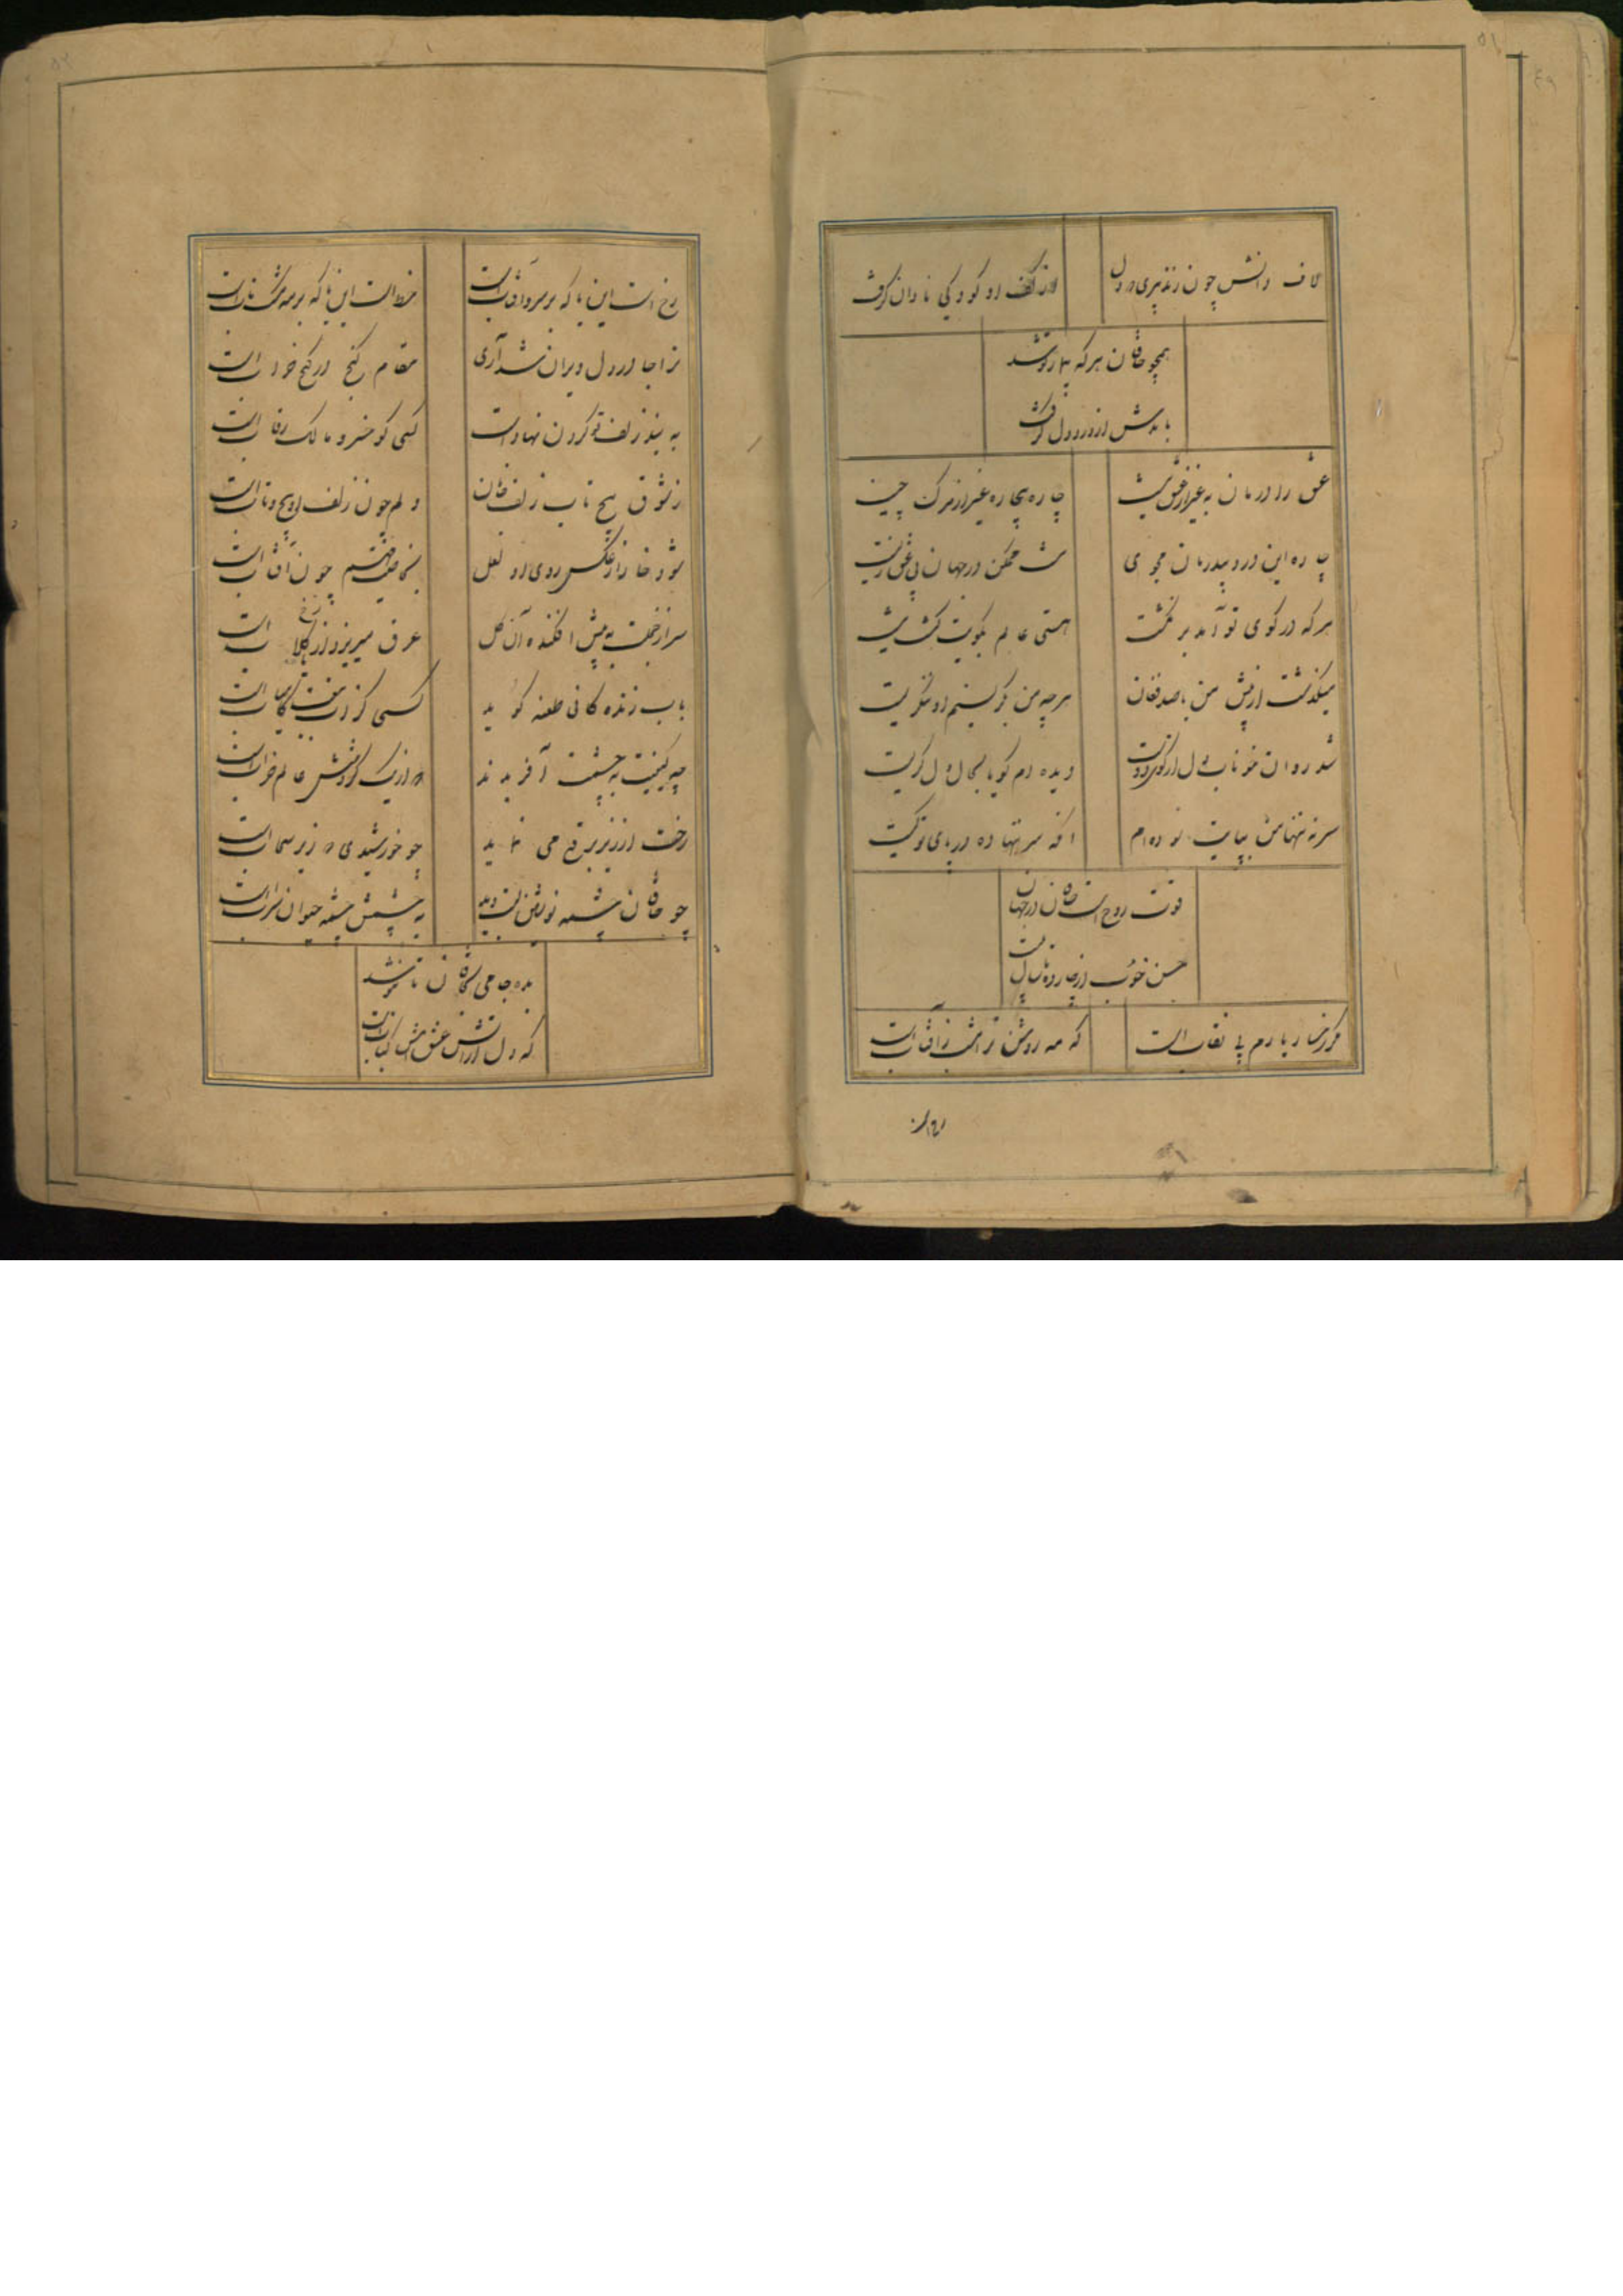 لاف دانش چون زند پیری در دل
از کف او کودکی نادان گرفت
همچو خاقان هرکه بیمار تو شد
بایدش از درد دل گرفت
عشق را درمان به غیر از نیست
چاره بیچاره غیر از مرگ چیست
چاره این درد بیدرمان مجوی
ممکن در جهان بی عشق زیست
هر که در کوی تو آمد بر نگشت
هستی عالم بکویت نیست
میگذشت از پیش من با صد فغان
هر چه من بگریستم او ننگریست
شد روان خوناب دل از
دیده ام گویا بحال دل گریست
سر نه تنها من بپایت سوده ام
آنکه سر ننهاده در پای تو کیست
قوت روح است خاقان در جهان
حسن خوب از
مگر رخسار یارم بی نقاب است
که مه روشن تر امشب ز آفتاب است
رخ است این یا که بر سرو آفتاب است
خط است این یا که بر مه مشک ناب است
ترا جا در دل ویران شد آری
مقام گنج در کنج خراب است
به بند زلف تو گردن نهاد است
کسی کو خسرو مالک رقاب است
ز شوق پیچ تاب زلف خاقان
دلم چون زلف او پیچ و تاب است
شود خارا ز عکس روی او لعل
چون آفتاب است
سر از خجلت به پیش افکنده آن گل
عرق میریزد از رخ گلاب است
بآب زنده گانی طعنه گوید
کسی کز کامیاب است
چه کیفیت به چشمت آفریدند
در از یک گردشش عالم خراب است
رخت از زیر برقع می نماید
چو خورشیدی در زیر سحاب است
چو خاقان چشمه نوشین لب دید
به پیشش چشمه حیوان سراب است
بده جامی بخاقان تا بنوشد
که دل از آتش عشقش کباب است